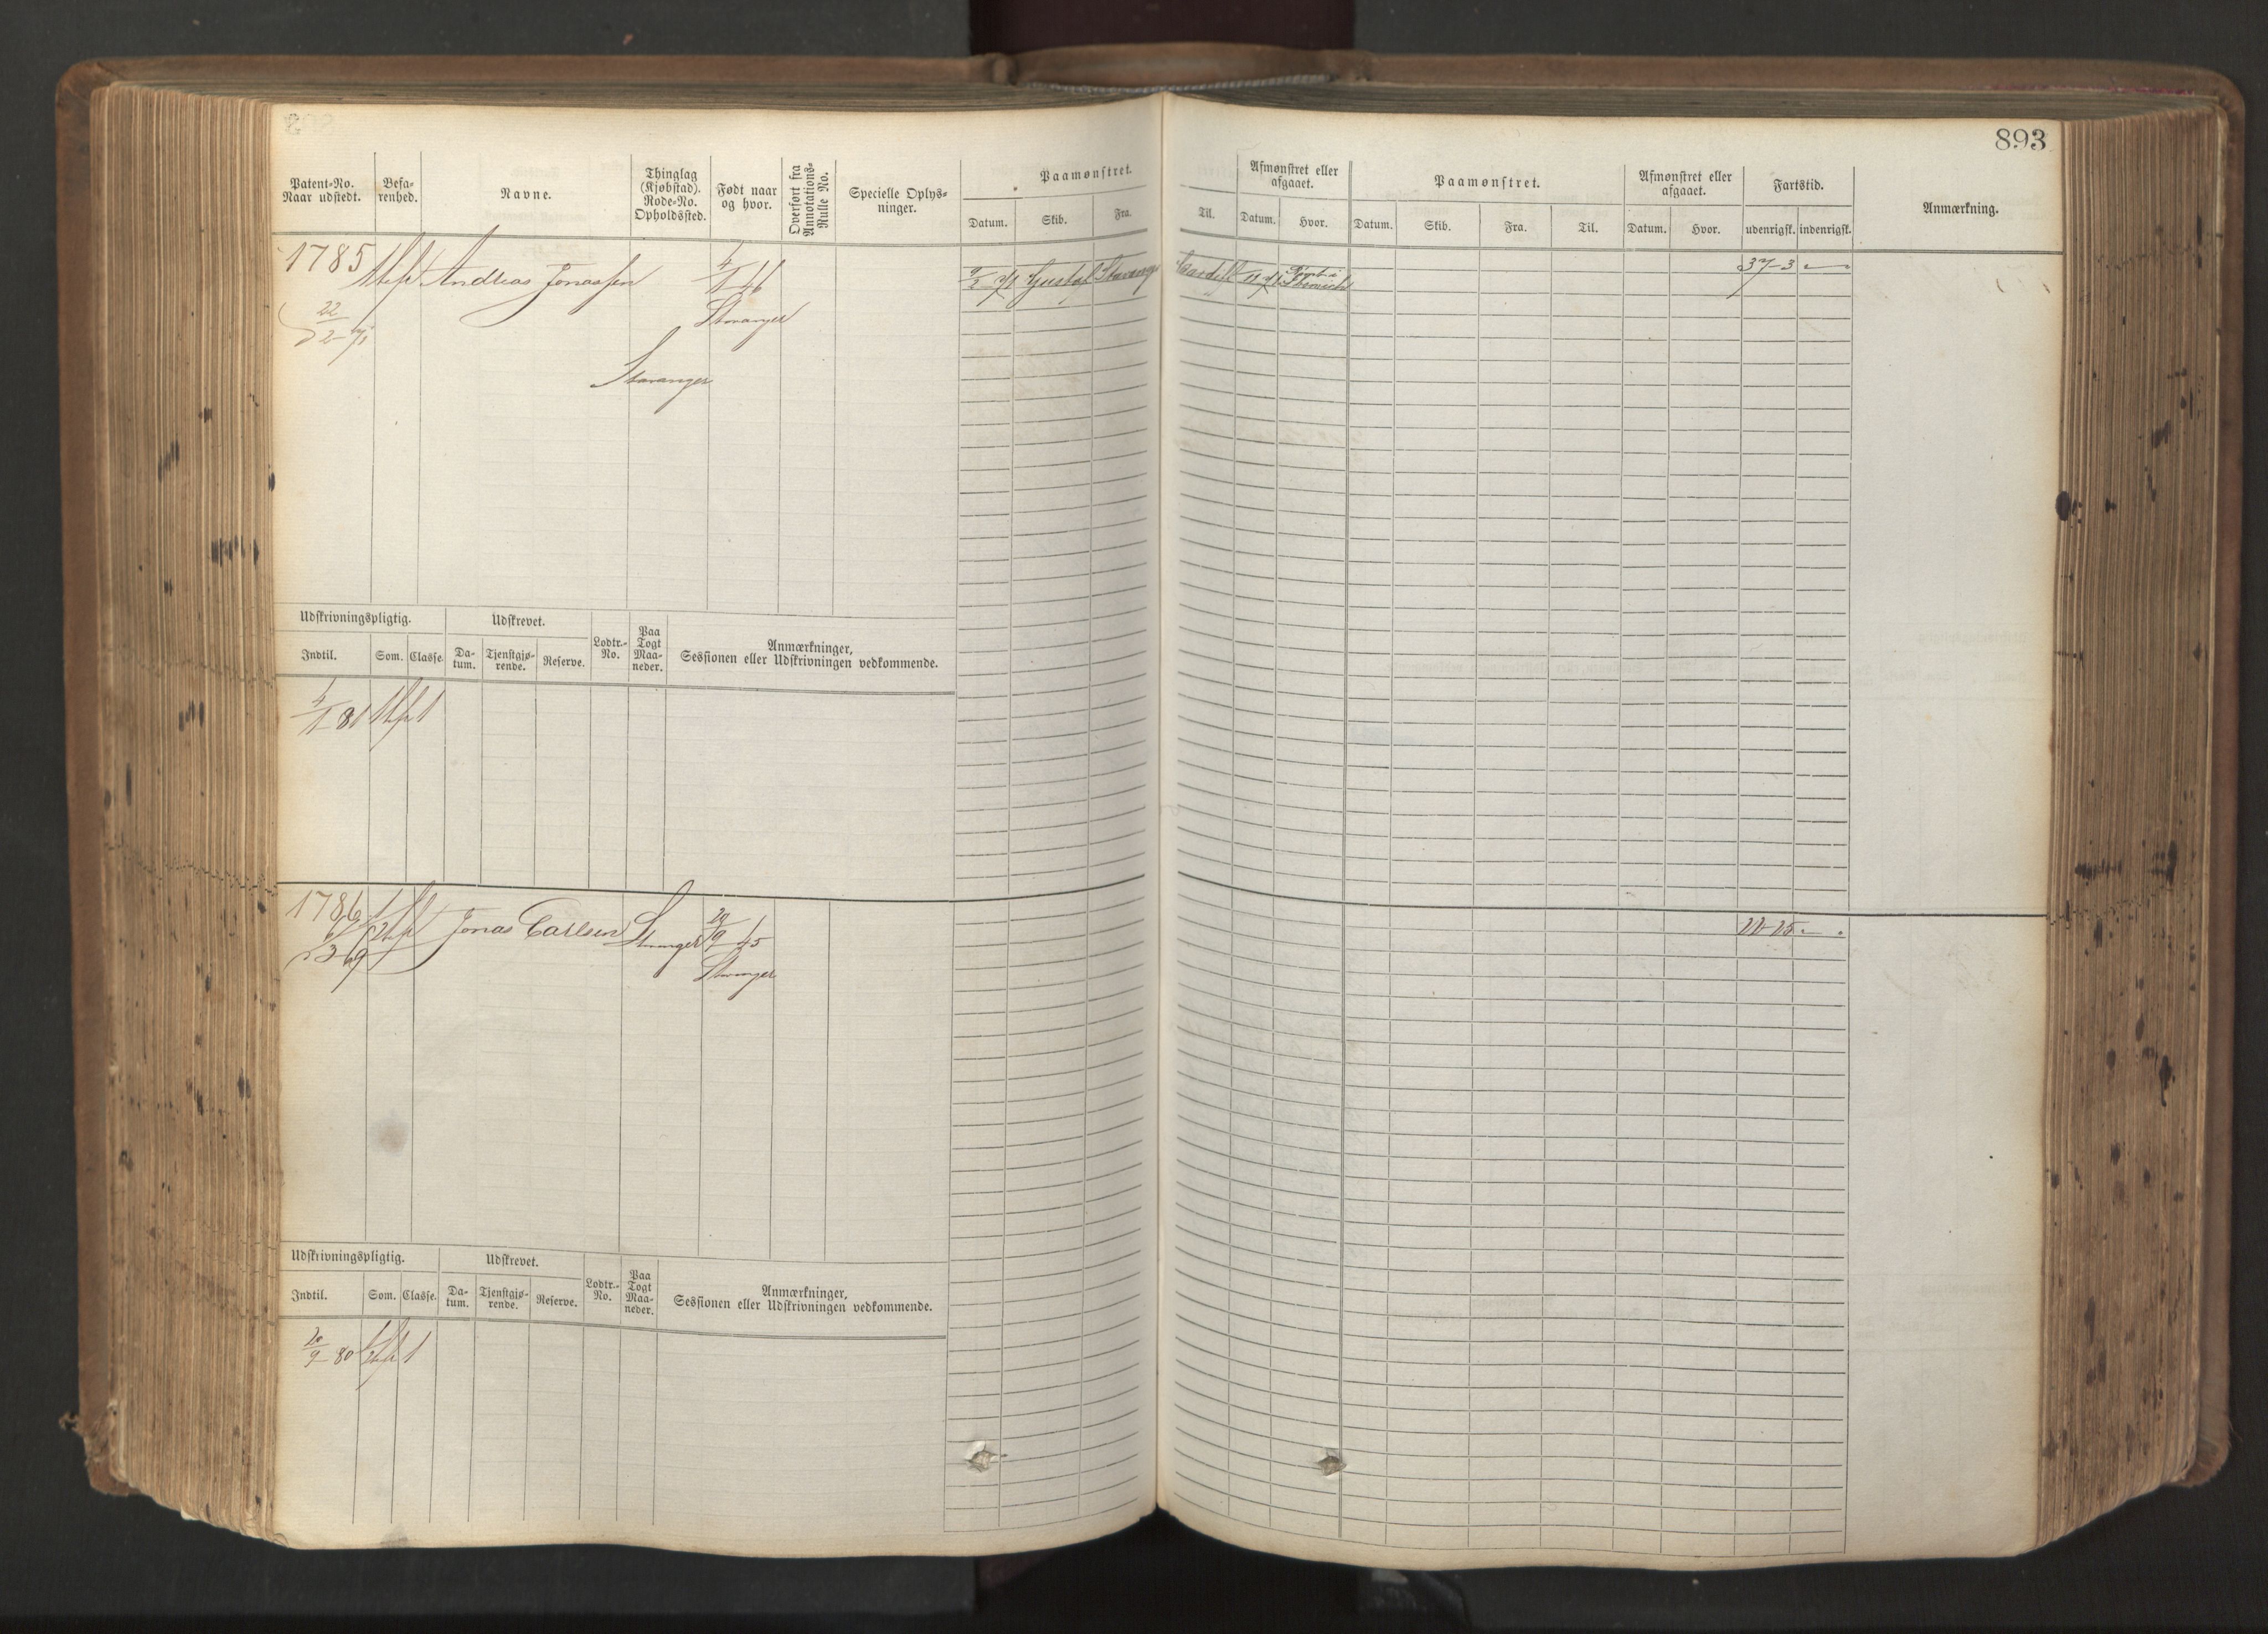 893
Patent-No. Naar udstedt.
Befarenhed.
Navne.
Thinglag (Kjøbstad). Rode-No. Opholdssted.
Født naar og hvor.
Overført fra Annotations-Rulle No.
Specielle Oplysninger.
Paamønstret.
Datum. Skib. Fra. Til.
Afmønstret eller afgaaet.
Datum. Hvor.
Paamønstret.
Datum. Skib. Fra. Til.
Afmønstret eller afgaaet.
Datum. Hvor.
Fartstid.
udenrigsk. indenrigsk.
Anmærkning.
1785 Andreas Jonassen 4/1 46 Gustaf Stavanger Cardiff 37-3
22/2 71 Stavanger
Stavanger
Udskrivningspligtig. Udskrevet.
Indtil. Som. Classe. Datum. Tjenstgjørende. Reserve. Lodtr.-No. Paa Togt Maaneder.
Anmærkninger, Sessionen eller Udskrivningen vedkommende.
4/1 81 1
1786 Jonas Carlsen Stavanger 20/9 45 22-25
3 69 Stavanger
Udskrivningspligtig. Udskrevet.
Indtil. Som. Classe. Datum. Tjenstgjørende. Reserve. Lodtr.-No. Paa Togt Maaneder.
Anmærkninger, Sessionen eller Udskrivningen vedkommende.
20/9 80 1